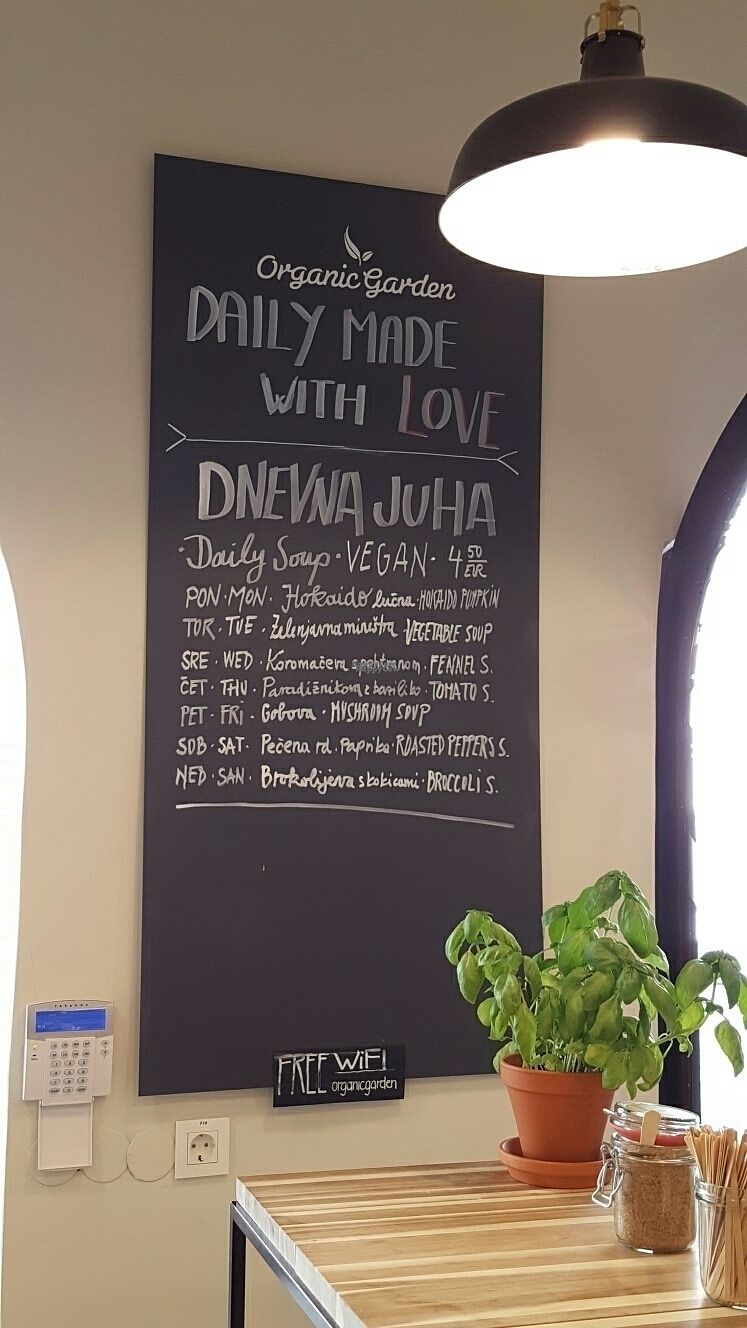 Organic Garden
DAILY MADE
WITH LOVE
DNEVNA JUHA
Daily Soup · VEGAN · 4 50 EUR
PON · MON · Hokaido bučna · HOKAIDO PUMPKIN
TOR · TUE · Zelenjavna mineštra · VEGETABLE SOUP
SRE · WED · Koromačeva s pehtranom · FENNEL S.
ČET · THU · Paradižnikova z baziliko · TOMATO S.
PET · FRI · Gobova · MUSHROOM SOUP
SOB · SAT · Pečena rd. Paprika · ROASTED PEPPERS S.
NED · SAN · Brokolijeva s kokicami · BROCCOLI S.
FREE WiFI
organicgarden
PARADOX